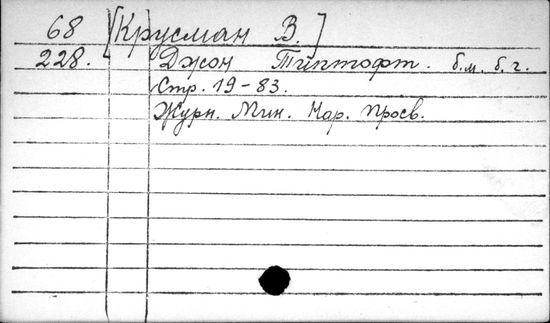 68 [Крусман В.]
228. Джон Типтофт. б.м. б.г.
Стр. 19-83.
Журн. Мин. Нар. Просв.